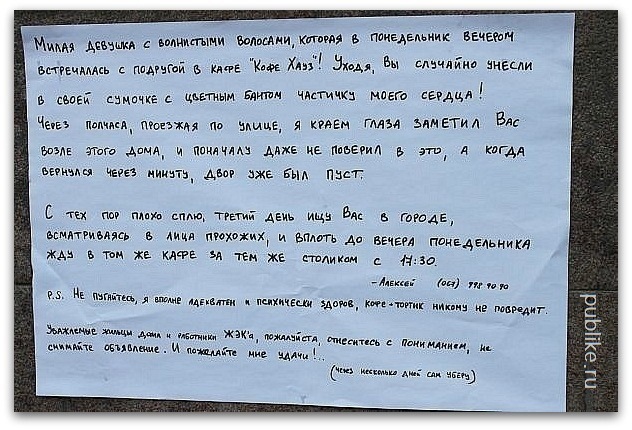 Милая девушка с волнистыми волосами, которая в понедельник вечером
встречалась с подругой в кафе "Кофе Хауз"! Уходя, Вы случайно унесли
в своей сумочке с цветным бантом частичку моего сердца!
Через полчаса, проезжая по улице, я краем глаза заметил Вас
возле этого дома, и поначалу даже не поверил в это, а когда
вернулся через минуту, двор уже был пуст.
С тех пор плохо сплю, третий день ищу Вас в городе,
всматриваясь в лица прохожих, и вплоть до вечера понедельника
жду в том же кафе за тем же столиком с 17:30.
- Алексей (067) 998 90 90
P.S. Не пугайтесь, я вполне адекватен и психически здоров, кофе+тортик никому не повредит.
Уважаемые жильцы дома и работники ЖЭК'а, пожалуйста, отнеситесь с пониманием, не
снимайте объявление. И пожелайте мне удачи!...
(через несколько дней сам уберу)
publike.ru